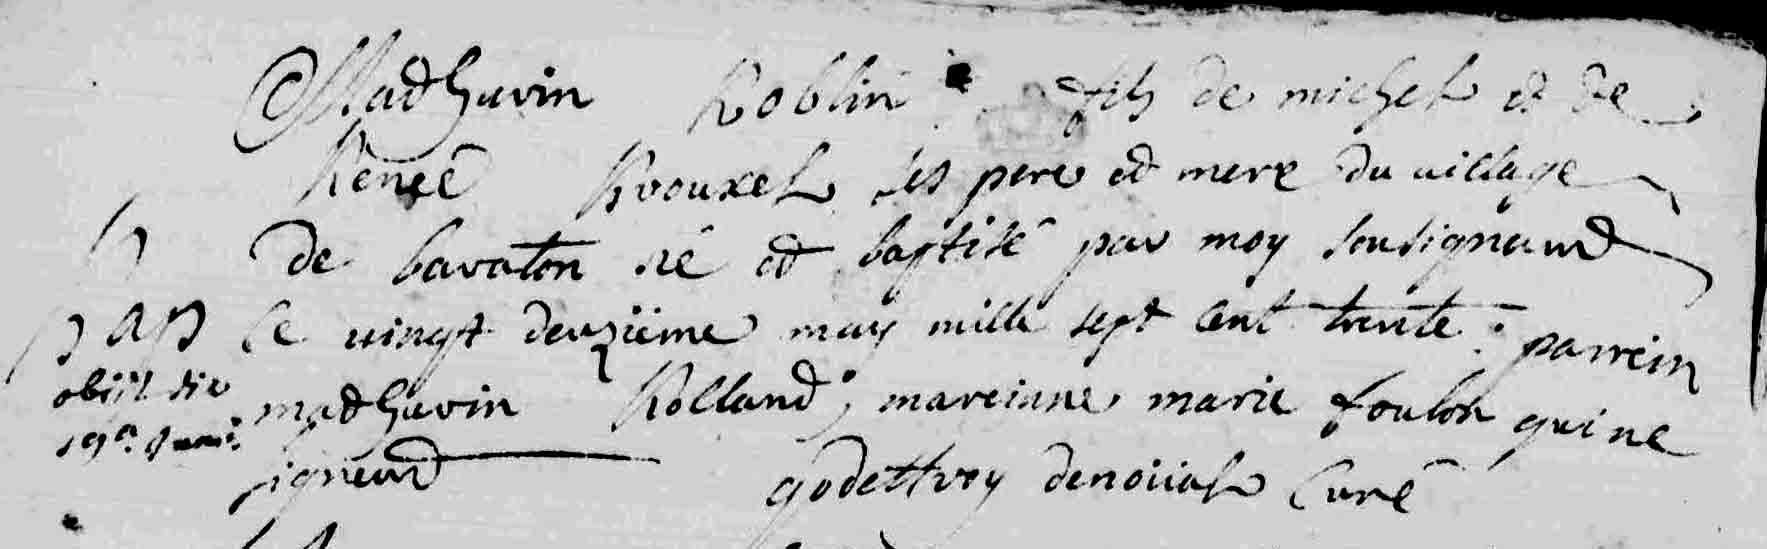 Mathurin Roblin fils de michel et de
Renée Rrouxel ses pere et mere du village
de bavalon né et baptisé par moy sousignant
Le vingt deuzième may mille sept cent trente : parrein
mathurin Rolland ; mareinne marie foulon qui ne
signent
godeffroy denoüal Curé
obiit die
19a Junii